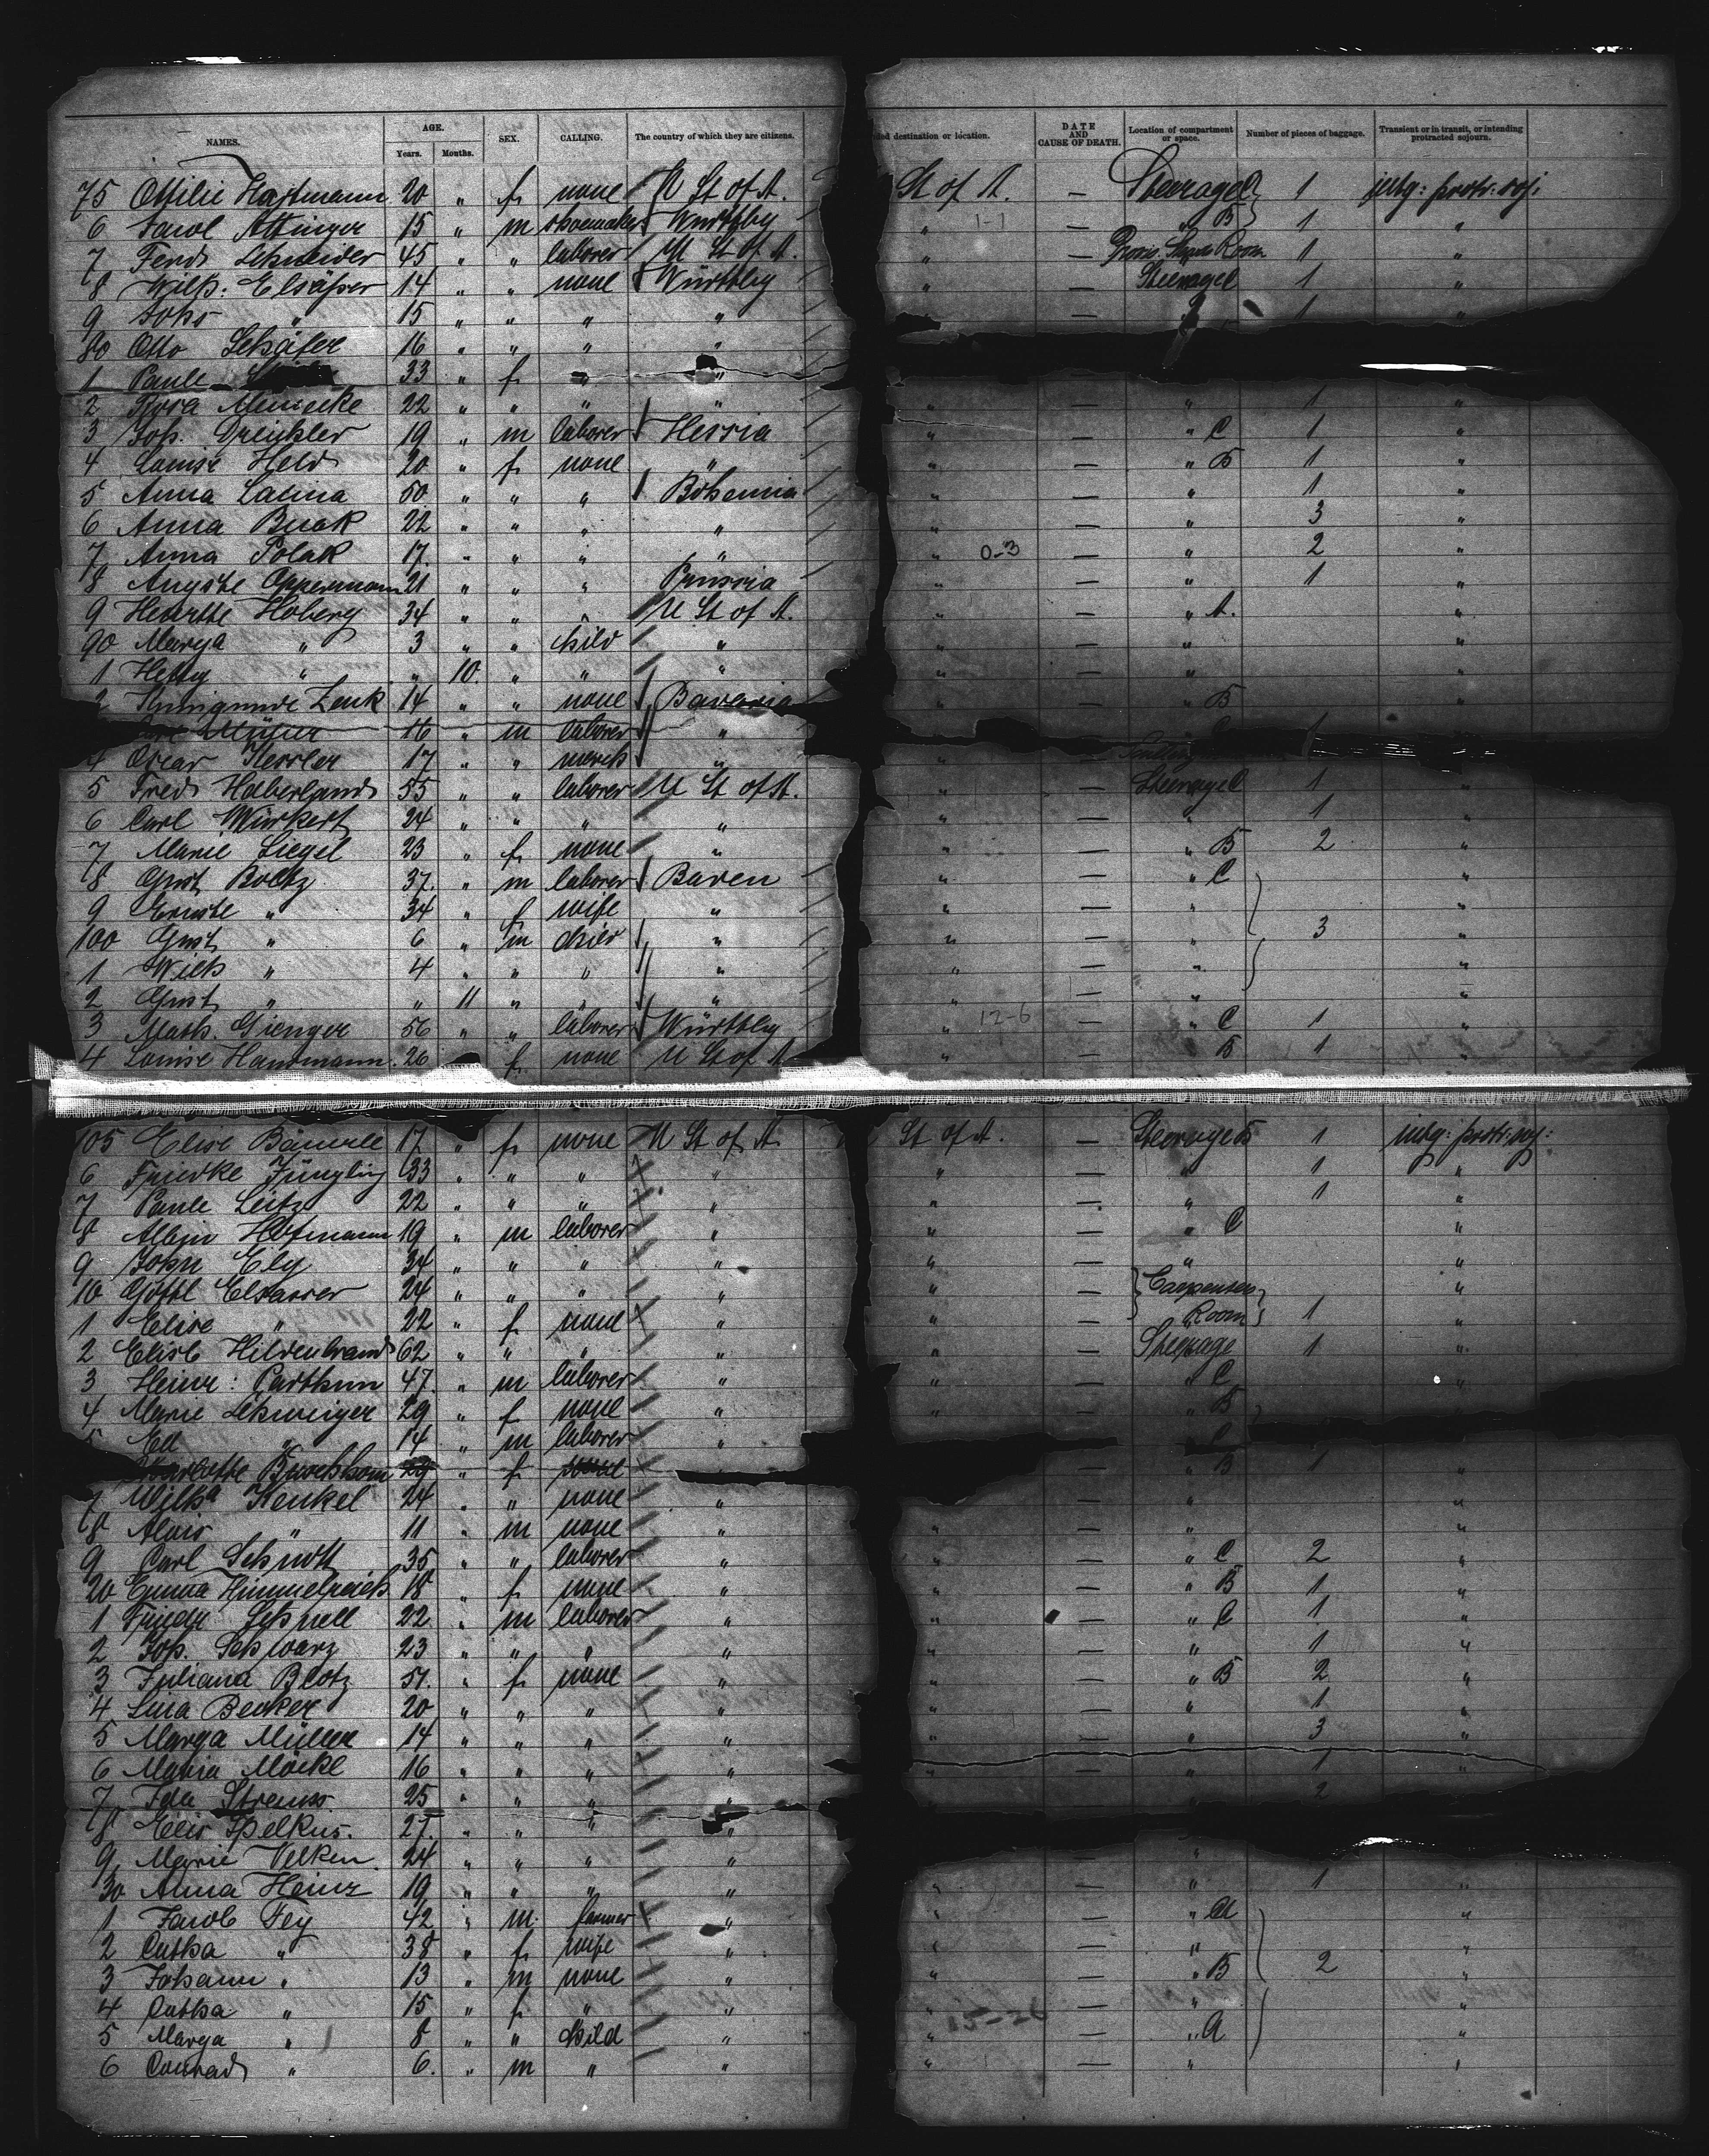 NAMES. AGE. Years. Months. SEX. CALLING. The country of which they are citizens. destination or location. DATE AND CAUSE OF DEATH. Location of compartment or space. Number of pieces of baggage. Transient or in transit, or intending protracted sojourn.
75 Ottilie Hartmann 20 " f. none U St of A. St of A. — Steerage 1 protr: soj:
6 Attinger 15 " m shoemaker Württbg " 1-1 — " B 1 "
7 Ferd Schneider 45 " " laborer U St of A. " — Room 1 "
8 Wilh: Elsäßer 14 " " none Württbg " — Steerage C 1 "
9 Johs " 15 " " " " — 1
80 Otto Schäfer 16 " " " "
1 Paule 33 " f. " "
2 Meinicke 22 " " " " " — " 1 "
3 Joh. 19 " m laborer Hessia " — " C 1 "
4 Louise Held 20 " f. none " " — " B 1 "
5 Anna 50 " " " Bohemia " — " 1 "
6 Anna 22 " " " " " — " 3 "
7 Anna Polak 17. " " " " " 0-3 — " 2 "
8 Auguste Oppermann 21 " " " Prussia " — " 1 "
9 Hoberg 34 " " U St of A. " — " A. "
90 Marga " 3 " " child " " — " "
1 Hetty " " 10. " " " " — " "
2 Kunigunde Zenk 14 " " none Bavaria " — " B "
Müller 16 " m laborer "
4 Oscar Kessler 17 " " merch "
5 Fred Haberland 55 " " laborer U St of A. " — Steerage C 1 "
6 Carl Würkert 24 " " " " " — " 1 "
7 Marie Siegel 23 " f. none " " — " B 2 "
8 Gust Boltz 37. " m laborer Baden " — " C "
9 " 34 " f wife " " — " "
100 Gust " 6 " m child " " — " 3 "
1 Wilh " 4 " " " " " — " "
2 Gust " " 11 " " " " — " "
3 Math. Gienger 56 " " laborer Württbg " 12-6 — " C 1 "
4 Louise Handmann. 26 f. none U St of A " — B 1 "
105 Elise Bäuerle 17 " f. none U St of A. St of A. — Steerage B 1 protr: soj:
6 Jüngling 33 " " " " " — " 1 "
7 Paule Leitz 22 " " " " " — " 1 "
8 Albin Hofmann 19 " m laborer " " — " C "
9 John Ely 34 " " " " " — " "
10 Gottl Elsasser 24 " " " " " — Carpenters "
1 Elise " 22 " f. none " " — Room 1 "
2 Elisb Hildenbrand 62 " " " " " — Steerage 1 "
3 Heinr: Parthum 47. " m laborer " " — " C "
4 Marie Schweiger 29 " f none " " — " B
5 Ed " 14 " m laborer " C
29 " f. none " " B 1 "
7 Wilha Henkel 24 " " none " — " "
8 Alois " 11 " m none " " — " "
9 Carl Schmitt 35 " " laborer " " — " C 2 "
20 Emma Himmelreich 18 " f. none " " — " B 1 "
1 Friedr Schnell 22 " m laborer " — " C 1 "
2 Joh. Schwarz 23 " " " " " — " 1 "
3 Juliana Blotz 51. " f. none " " — " B 2 "
4 Lina Becker 20 " " " " " — " 1 "
5 Marga Müller 14 " " " " " — " 3 "
6 Maria Möckl 16 " " " " " — " 1 "
7 Ida Strauss 25 " " " " 2
8 27. " " " "
9 Marie Velken. 24 " " " " "
30 Anna Heinz 19 " " " " " — " 1 "
1 Jacob Fey 42 " m. farmer " " — " A "
2 Catha " 38 " f. wife " " — " "
3 Johann " 13 " m none " " — " B 2 "
4 Catha " 15 " f. " " " — " "
5 Marga " 8 " " child " " 15-26 — " A "
6 Conrad " 6. " m " " " — " "